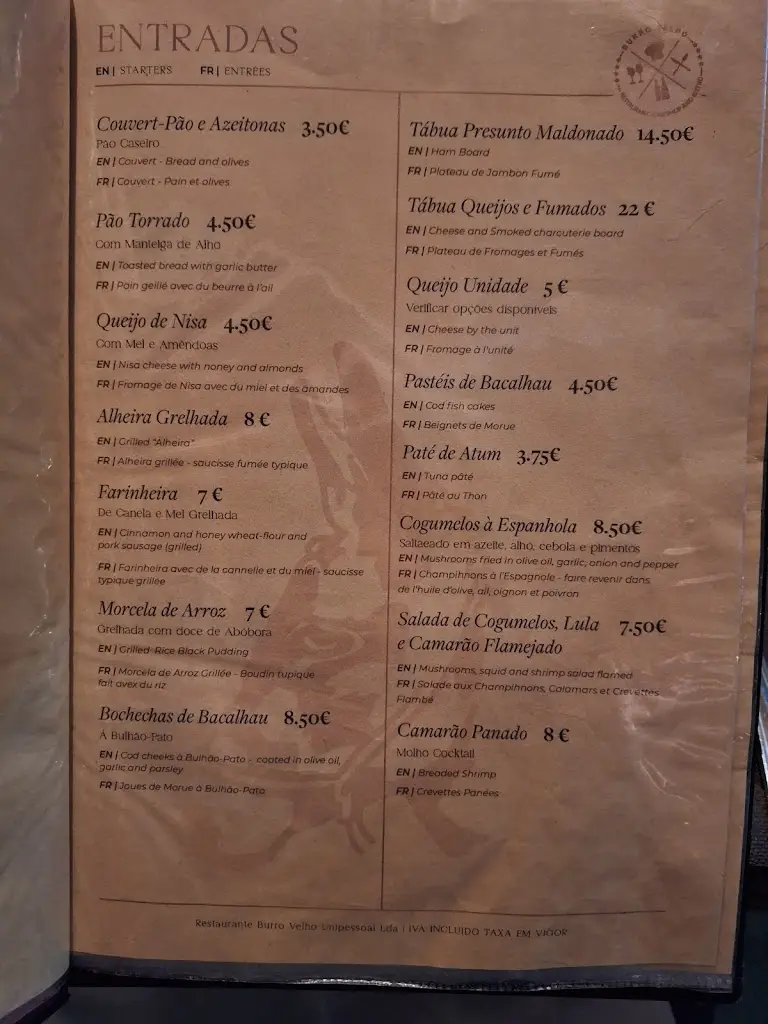 ENTRADAS
EN | STARTERS FR | ENTRÉES
BURRO VELHO
Couvert-Pão e Azeitonas 3.50€
Pão Caseiro
EN | Couvert - Bread and olives
FR | Couvert - Pain et olives
Pão Torrado 4.50€
Com Manteiga de Alho
EN | Toasted bread with garlic butter
FR | Pain geillé avec du beurre à l'ail
Queijo de Nisa 4.50€
Com Mel e Amêndoas
EN | Nisa cheese with honey and almonds
FR | Fromage de Nisa avec du miel et des amandes
Alheira Grelhada 8 €
EN | Grilled "Alheira"
FR | Alheira grillée - saucisse fumée typique
Farinheira 7 €
De Canela e Mel Grelhada
EN | Cinnamon and honey wheat-flour and
pork sausage (grilled)
FR | Farinheira avec de la cannelle et du miel - saucisse
typique grillée
Morcela de Arroz 7 €
Grelhada com doce de Abóbora
EN | Grilled Rice Black Pudding
FR | Morcela de Arroz Grillée - Boudin tupique
fait avex du riz
Bochechas de Bacalhau 8.50€
À Bulhão-Pato
EN | Cod cheeks à Bulhão-Pato - cooted in olive oil,
garlic and parsley
FR | Joues de Morue à Bulhão-Pato
Tábua Presunto Maldonado 14.50€
EN | Ham Board
FR | Plateau de Jambon Fumé
Tábua Queijos e Fumados 22 €
EN | Cheese and Smoked charcuterie board
FR | Plateau de Fromages et Fumés
Queijo Unidade 5 €
Verificar opções disponíveis
EN | Cheese by the unit
FR | Fromage à l'unité
Pastéis de Bacalhau 4.50€
EN | Cod fish cakes
FR | Beignets de Morue
Paté de Atum 3.75€
EN | Tuna pâté
FR | Pâté au Thon
Cogumelos à Espanhola 8.50€
Salteado em azeite, alho, cebola e pimentos
EN | Mushrooms fried in olive oil, garlic, onion and pepper
FR | Champihnons à l'Espagnole - faire revenir dans
de l'huile d'olive, ail, oignon et poivron
Salada de Cogumelos, Lula 7.50€
e Camarão Flamejado
EN | Mushrooms, squid and shrimp salad flamed
FR | Salade aux Champihnons, Calamars et Crevettes
Flambé
Camarão Panado 8 €
Molho Cocktail
EN | Breaded Shrimp
FR | Crevettes Panées
Restaurante Burro Velho Unipessoal Lda | IVA INCLUIDO TAXA EM VIGOR